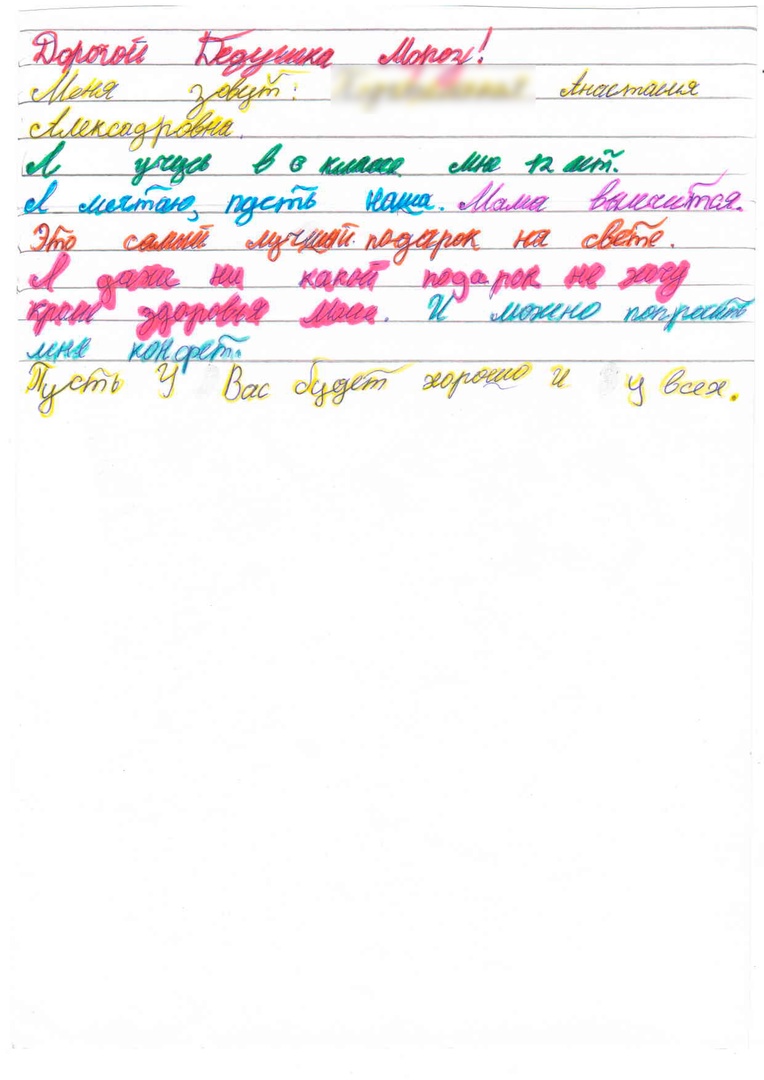 Дорогой Дедушка Мороз!
Меня зовут: Анастасия
Алексадровна.
Я учусь в 6 классе мне 12 лет.
Я мечтаю, пусть наша. Мама вылечится.
Это самый лучший подарок на свете.
Я даже ни какой подарок не хочу
кроме здоровья маме. И можно попросить
мне конфет.
Пусть У Вас будет хорошо и у всех.